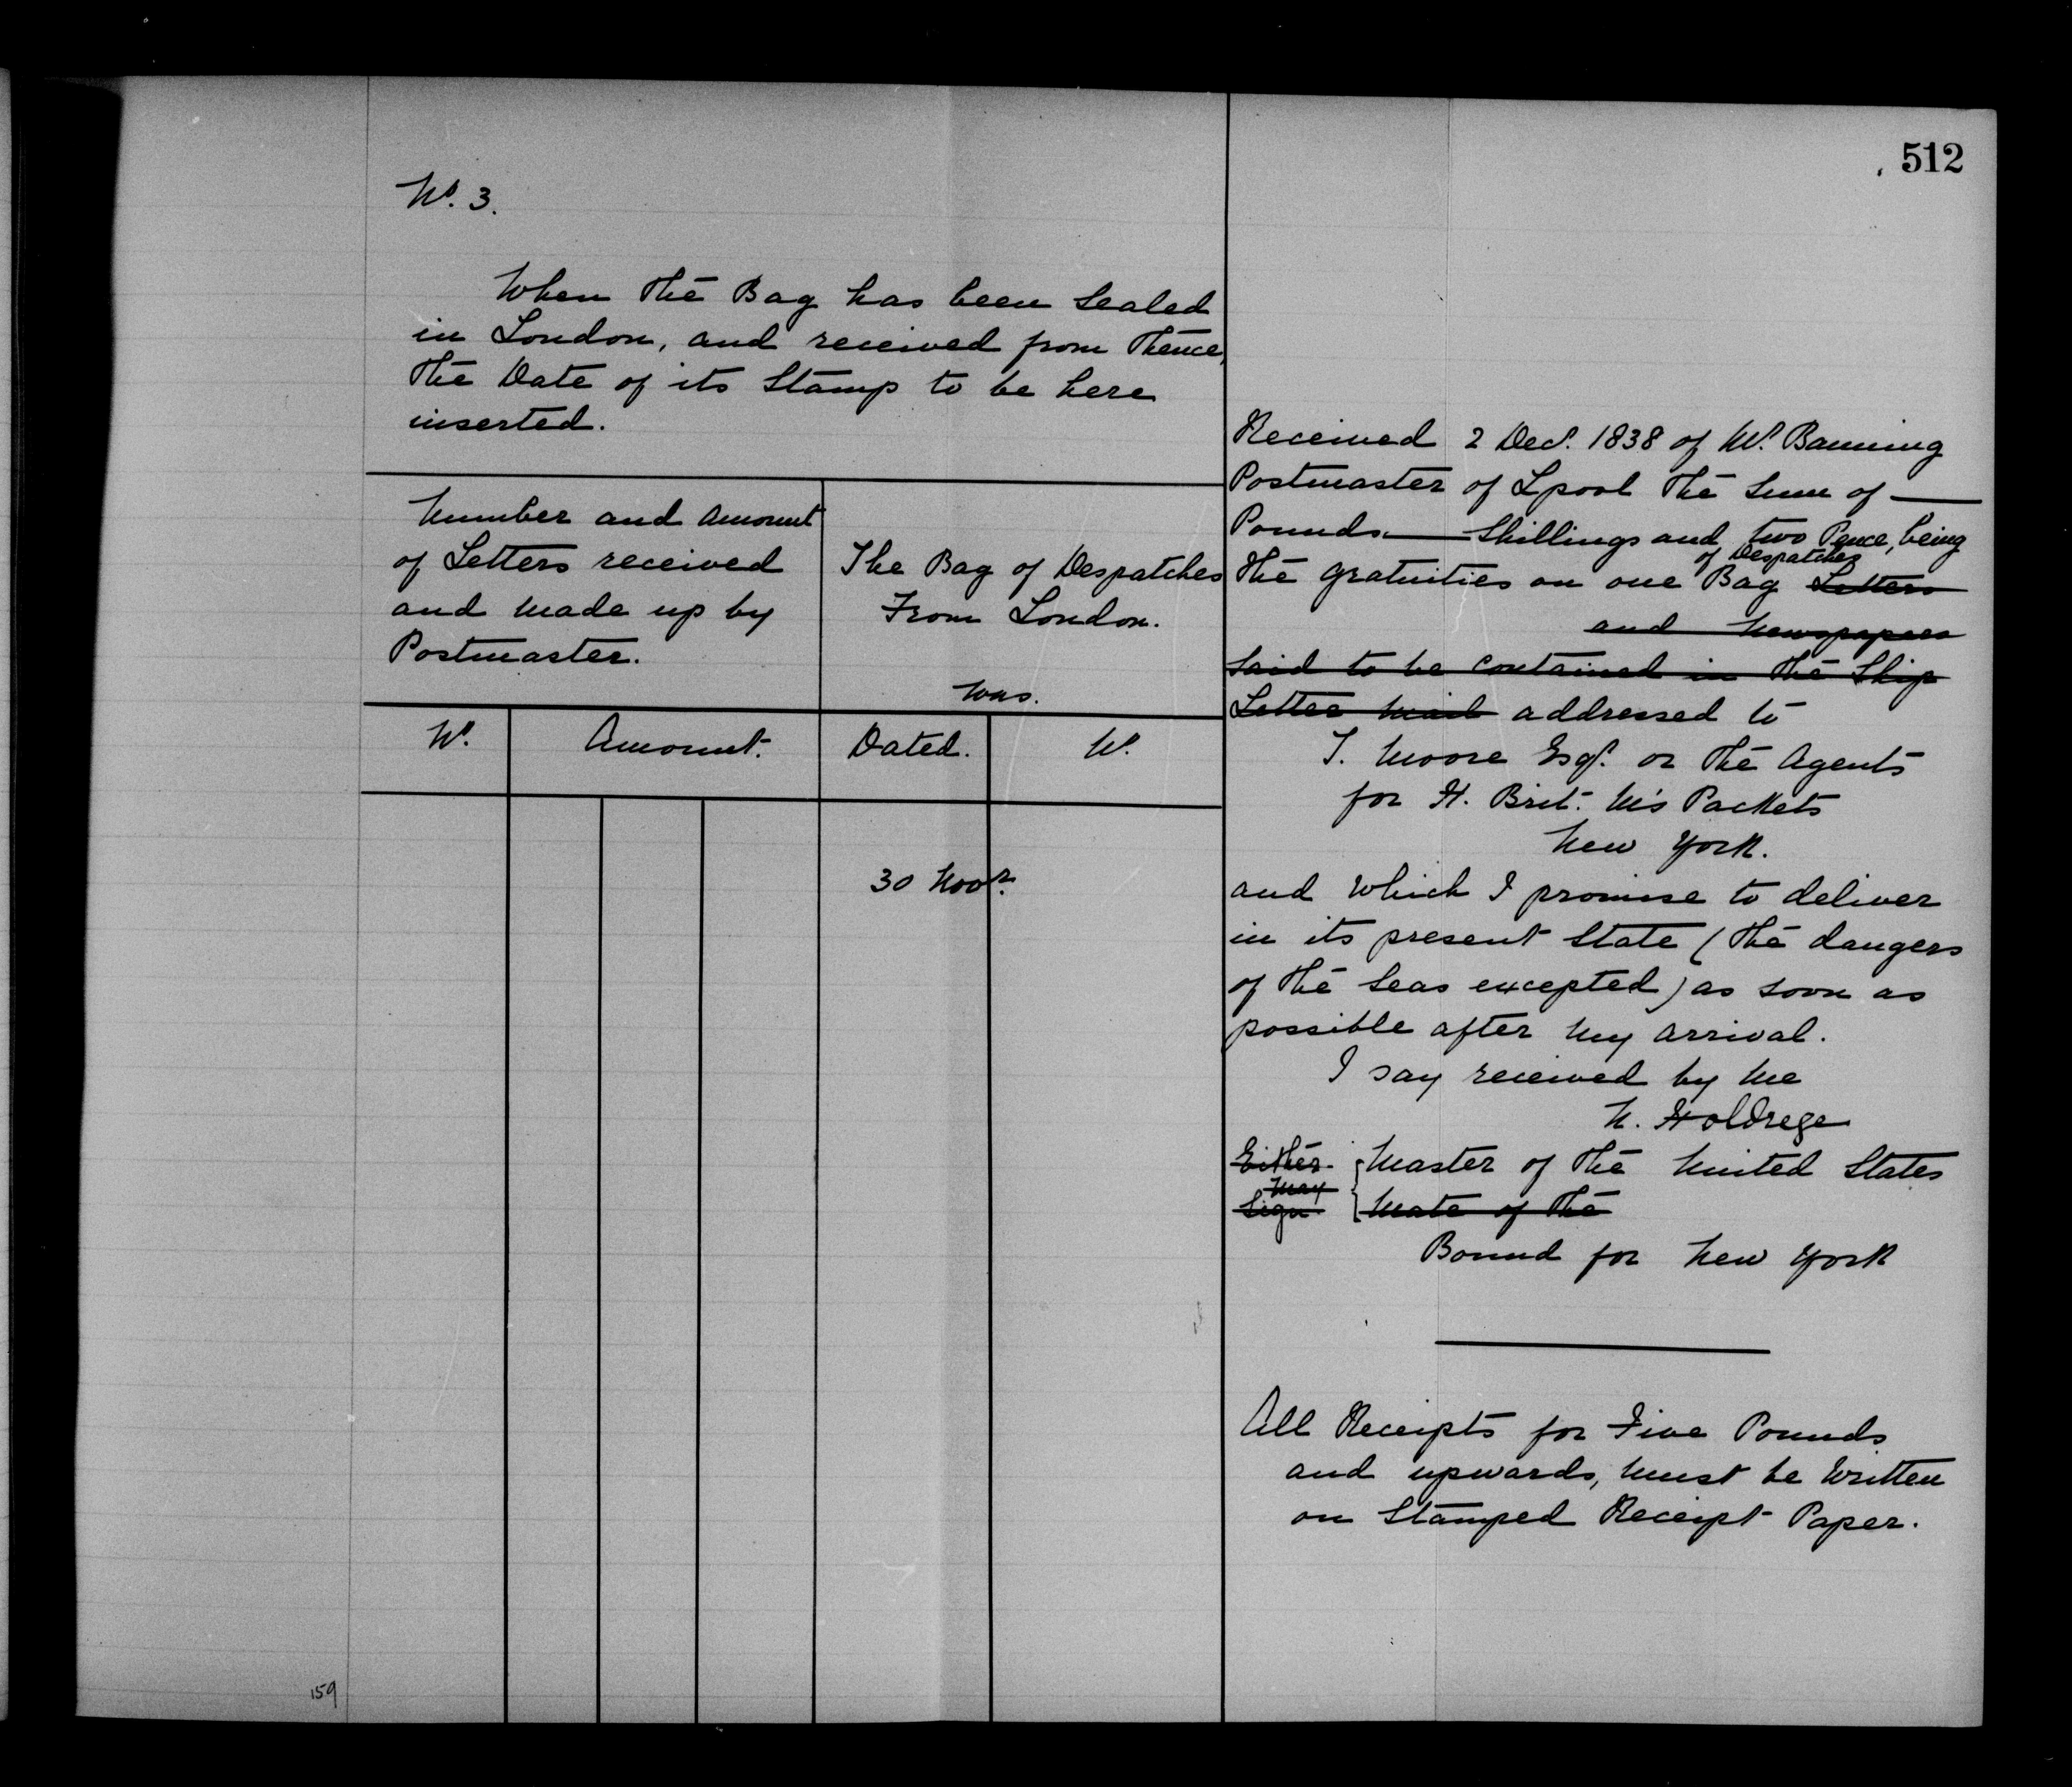 512
No. 3.
When the Bag has been Sealed
in London, and received from thence,
the Date of its Stamp to be here
inserted.
Number and Amount
of Letters received
and made up by
Postmaster.
The Bag of Despatches
From London.
was.
No.
Amount.
Dated.
No.
30 Novr.
Received 2 Decr. 1838 of Mr. Banning
Postmaster of Lpool the Sum of —
Pounds — Shillings and two Pence, being
of Despatches
the gratuities on one Bag Letters
and Newspapers
said to be contained in the Ship
Letter Mail addressed to
T. Moore Esqr. or the Agents
for H. Brit. M's Packets
New York.
and which I promise to deliver
in its present State (the dangers
of the Seas excepted) as soon as
possible after my arrival.
I say received by me
N. Holdrege
Either { Master of the United States
may
Sign { Mate of the
Bound for New York
All Receipts for Five Pounds
and upwards, must be Written
on Stamped Receipt Paper.
159